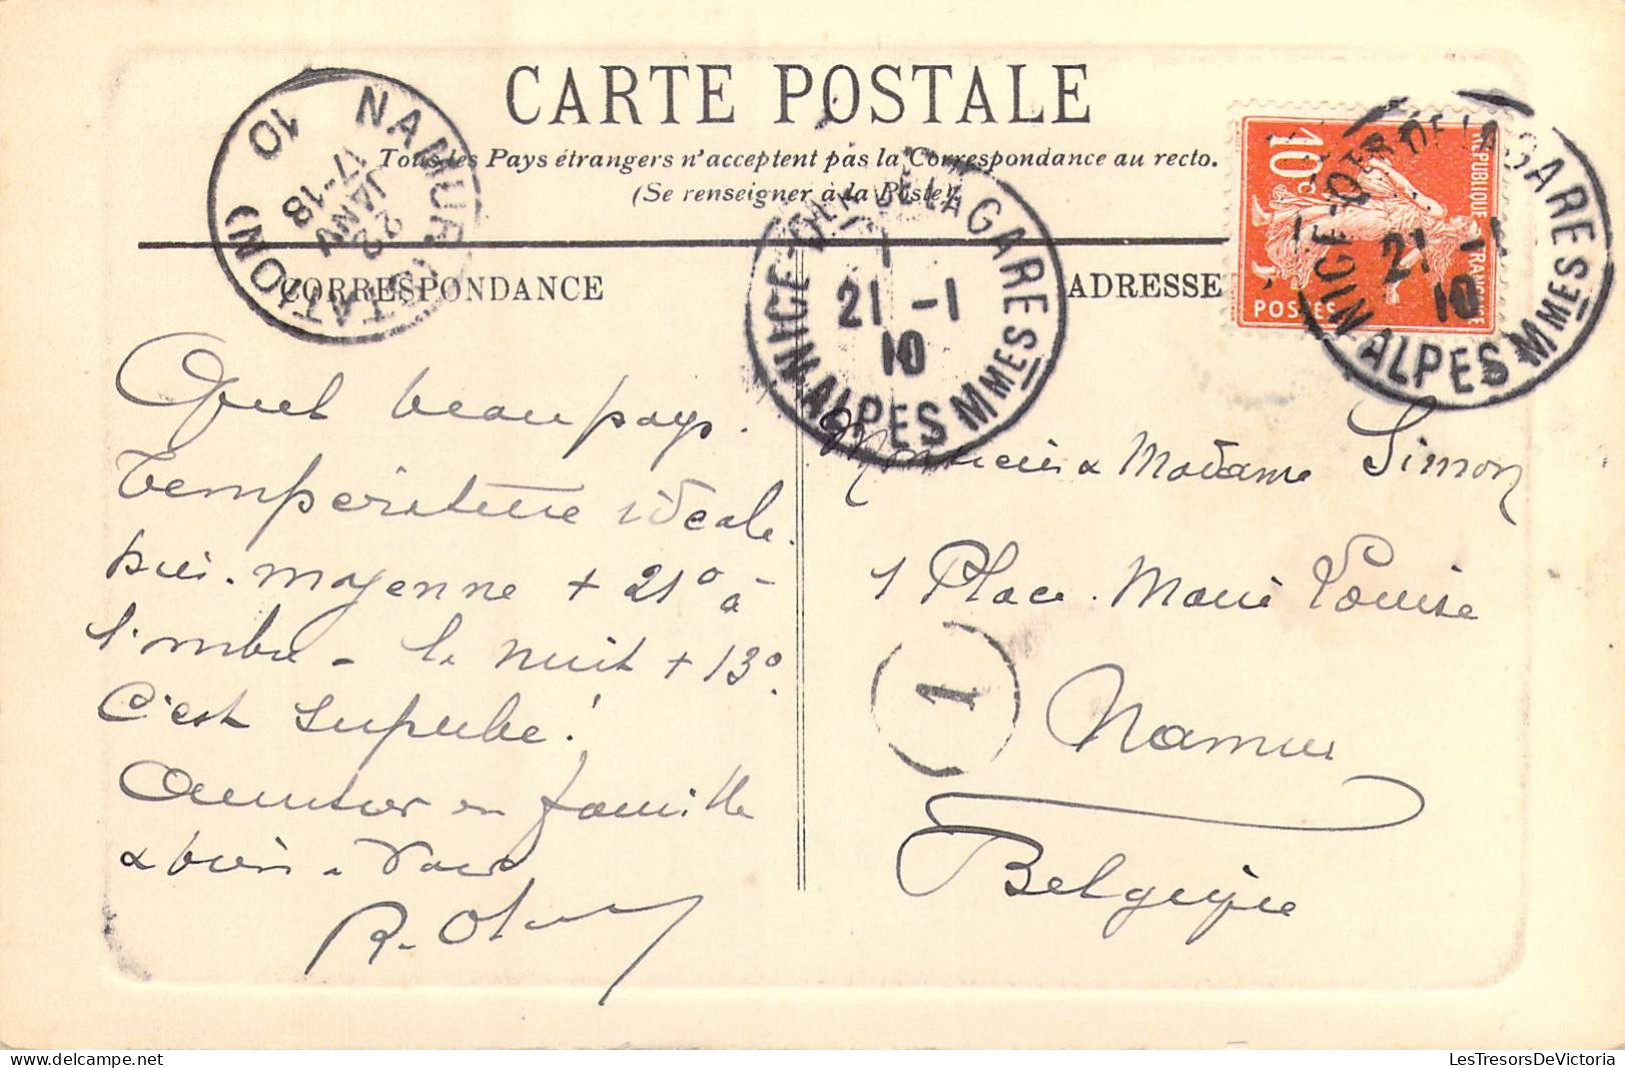 CARTE POSTALE
Tous les Pays étrangers n'acceptent pas la Correspondance au recto.
(Se renseigner à la Poste).
NAMUR (STATION)
17-18
22
JANV
10
NICE-QER DE LA GARE
21 -1
10
ALPES MMES
10 c
REPUBLIQUE FRANÇAISE
POSTES
NICE-QER DE LA GARE
21 -1
10
ALPES MMES
CORRESPONDANCE
ADRESSE
Quel beau pays.
Température idéale.
puis. moyenne + 21° à
l'ombre - la nuit + 13°.
C'est superbe!
en famille
& bien à vous
R.
Monsieur & Madame Simon
1 Place Marie Louise
1
Namur
Belgique
LesTresorsDeVictoria